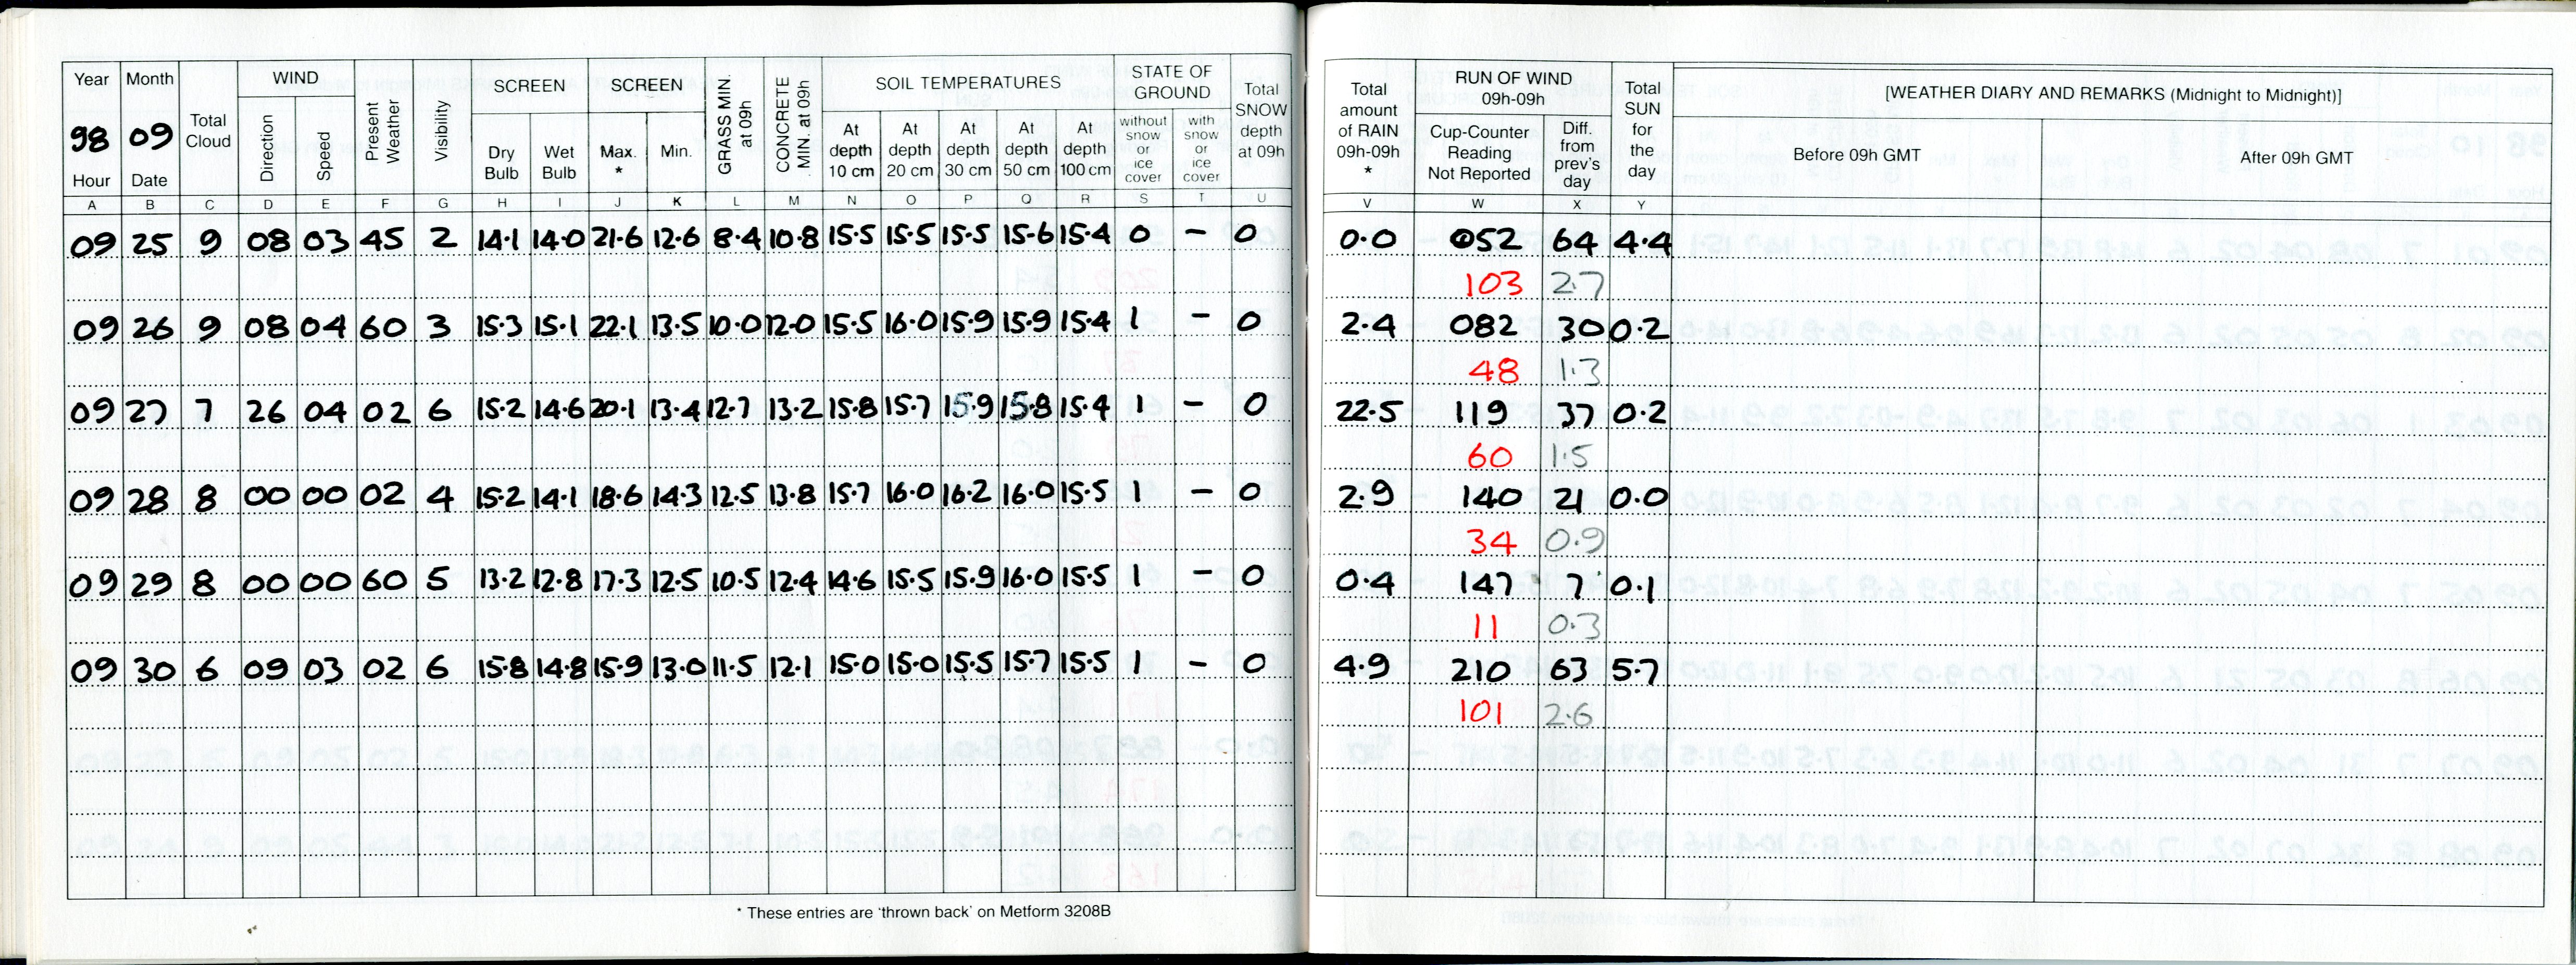 Year Month WIND SCREEN SCREEN SOIL TEMPERATURES STATE OF GROUND
98 09 Total Cloud Direction Speed Present Weather Visibility Dry Bulb Wet Bulb Max. * Min. GRASS MIN. at 09h CONCRETE MIN. at 09h At depth 10 cm At depth 20 cm At depth 30 cm At depth 50 cm At depth 100 cm without snow or ice cover with snow or ice cover Total SNOW depth at 09h
Hour Date
A B C D E F G H I J K L M N O P Q R S T U
09 25 9 08 03 45 2 14.1 14.0 21.6 12.6 8.4 10.8 15.5 15.5 15.5 15.6 15.4 0 – 0
09 26 9 08 04 60 3 15.3 15.1 22.1 13.5 10.0 12.0 15.5 16.0 15.9 15.9 15.4 1 – 0
09 27 7 26 04 02 6 15.2 14.6 20.1 13.4 12.7 13.2 15.8 15.7 15.9 15.8 15.4 1 – 0
09 28 8 00 00 02 4 15.2 14.1 18.6 14.3 12.5 13.8 15.7 16.0 16.2 16.0 15.5 1 – 0
09 29 8 00 00 60 5 13.2 12.8 17.3 12.5 10.5 12.4 14.6 15.5 15.9 16.0 15.5 1 – 0
09 30 6 09 03 02 6 15.8 14.8 15.9 13.0 11.5 12.1 15.0 15.0 15.5 15.7 15.5 1 – 0
* These entries are 'thrown back' on Metform 3208B
Total amount of RAIN 09h-09h * RUN OF WIND 09h-09h Total SUN for the day [WEATHER DIARY AND REMARKS (Midnight to Midnight)]
Cup-Counter Reading Not Reported Diff. from prev's day Before 09h GMT After 09h GMT
V W X Y
0.0 052 64 4.4
103 2.7
2.4 082 30 0.2
48 1.3
22.5 119 37 0.2
60 1.5
2.9 140 21 0.0
34 0.9
0.4 147 7 0.1
11 0.3
4.9 210 63 5.7
101 2.6